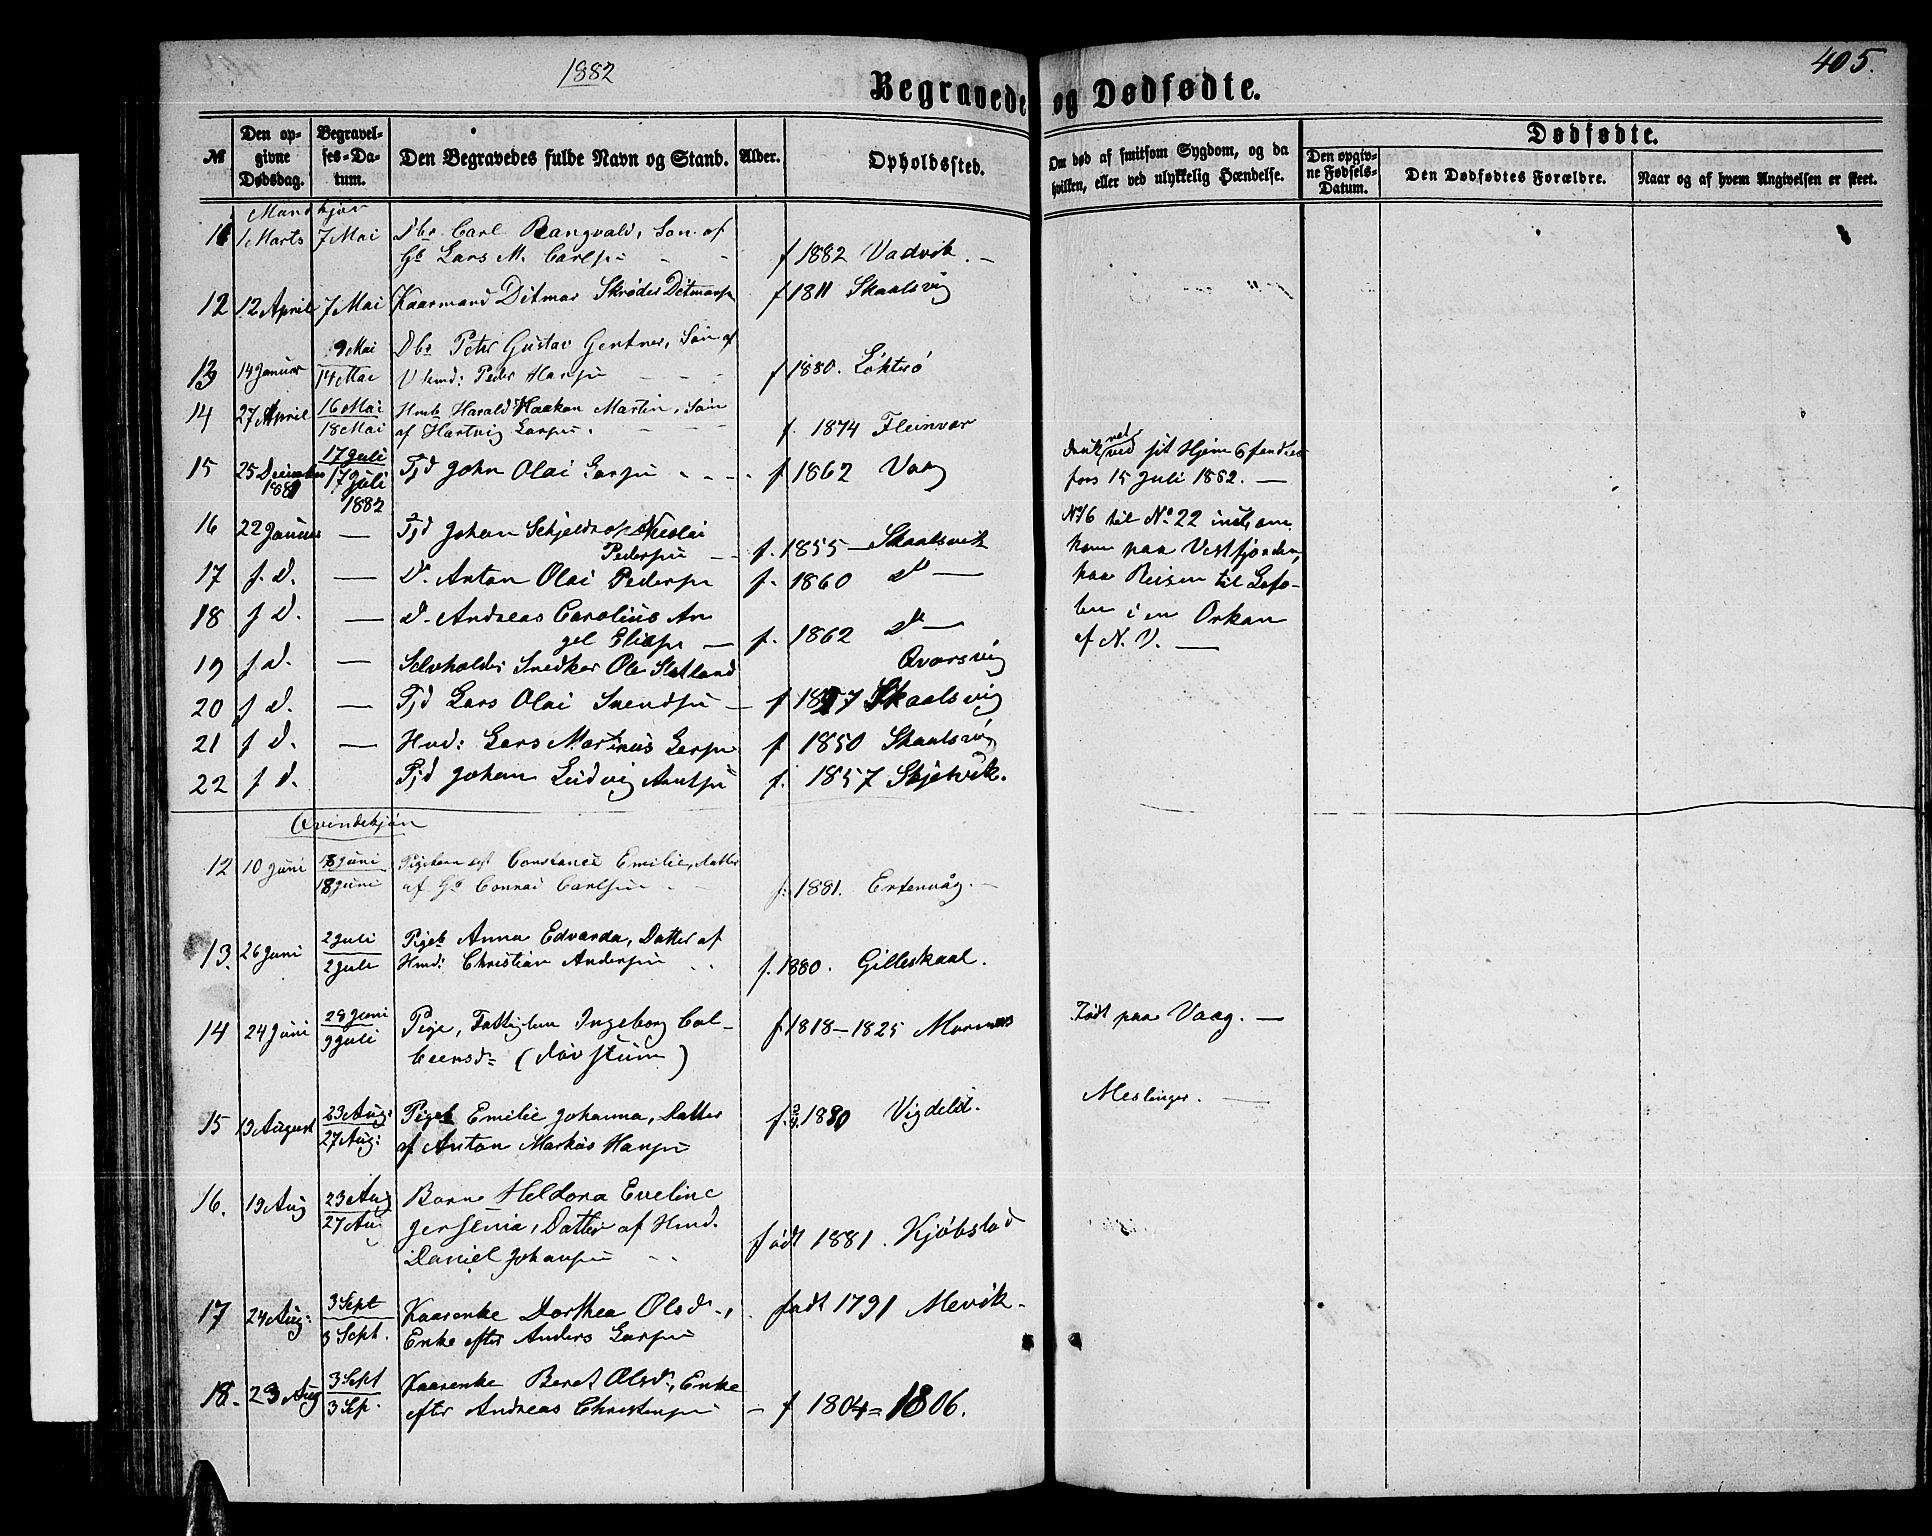 1882
405.
Begravede og Dødfødte.
№
Den opgivne Dødsdag.
Begravelses-Datum.
Den Begravedes fulde Navn og Stand.
Alder.
Opholdssted.
Om død af smitsom Sygdom, og da hvilken, eller ved ulykkelig Hændelse.
Dødfødte.
Den opgivne Fødsels-Datum.
Den Dødfødtes Forældre.
Naar og af hvem Angivelsen er skeet.
Mandkjøn
11 1 Marts 7 Mai Dbn Carl Rangvald, Søn af
Gb Lars M. Carlsen f 1882 Vadvik.
12 12 April 7 Mai Kaarmand Ditmar Skrøder Ditmarsen f 1811 Skaalsvig
13 14 Januar 9 Mai 14 Mai Dbn Peter Gustav Gentner, Søn af
Hmd: Peder Hansen f 1880. Løkterø
14 27 April 16 Mai 18 Mai Hmb Harald Haakon Martin, Søn
af Hartvig Larsen. f. 1874 Fleinvær
15 25 December 1881 17 Juli 17 Juli 1882 Tjd John Olai Larsen f 1862 Vaag
ved sit Hjem
15 Juli 1882.
16 22 Januar — Tjd Johan Schjeldrof Nicolai
Pedersen f. 1855 Skaalsvik
No 16 til No. 22 incl, om
kom paa Vestfjorden,
paa Reisen til Lofo-
ten i en Orkan
af N. V.
17 f. D. — D. Anton Olai Pedersen f. 1860 D —
18 f D. — D. Andreas Carolius An
gel Eliasen — f. 1862 D —
19 f d. — Selvholder Snedker Ole Slotland Qvarsvig
20 f d. — Tjd Lars Olai Svendsen — f 1857 Skaalsvig
21 f d. — Hmd: Lars Martinus Larsen f 1850 Skaalsvig
22 f d. Tjd Johan Ludvig Antsen f. 1857 Skjelvik.
Qvindekjøn
12 10 Juni 18 Juni 18 Juni Pigebarn Constance Emilie, Datter
af Gb Conrad Carlsen f. 1881. Ertenvåg.
13. 26 Juni 2 Juli 2 Juli Pigeb Anna Edvarda, Datter af
Hmd: Christian Andersen f. 1880. Gilleskaal.
14 24 Juni 28 Juni 9 Juli Pige, Fattiglem Ingeborg Col-
beensd: (Døvstum) f. 1818-1825 Mornes
Født paa Vaag. —
15 19 August 23 Aug: 27 Aug: Pigeb Emilie Johanna, Datter
af Anton Markus Hansen f. 1880 Vigdeld.
Meslinger.
16. 19 Aug 23 Aug 27 Aug Barne Heldora Eveline
Jersenia, Datter af Hmd.
Daniel Johansen født 1881. Kjøbstad
17 24 Aug: 3 Sept 3 Sept. Kaarenke Dorthea Olsd:,
Enke efter Anders Larsen født 1791 Mevik.
18. 23 Aug 3 Sept 3 Sep. Kaarenke Beret Olsd:, Enke
efter Andreas Christensen — f 1804 = 1806.